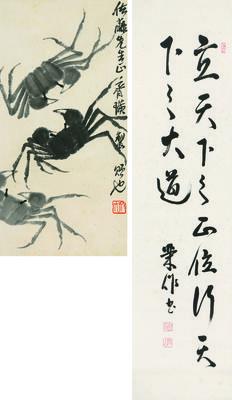 佐藤先生正 齊璜 製
立天下之正位行天
下之大道